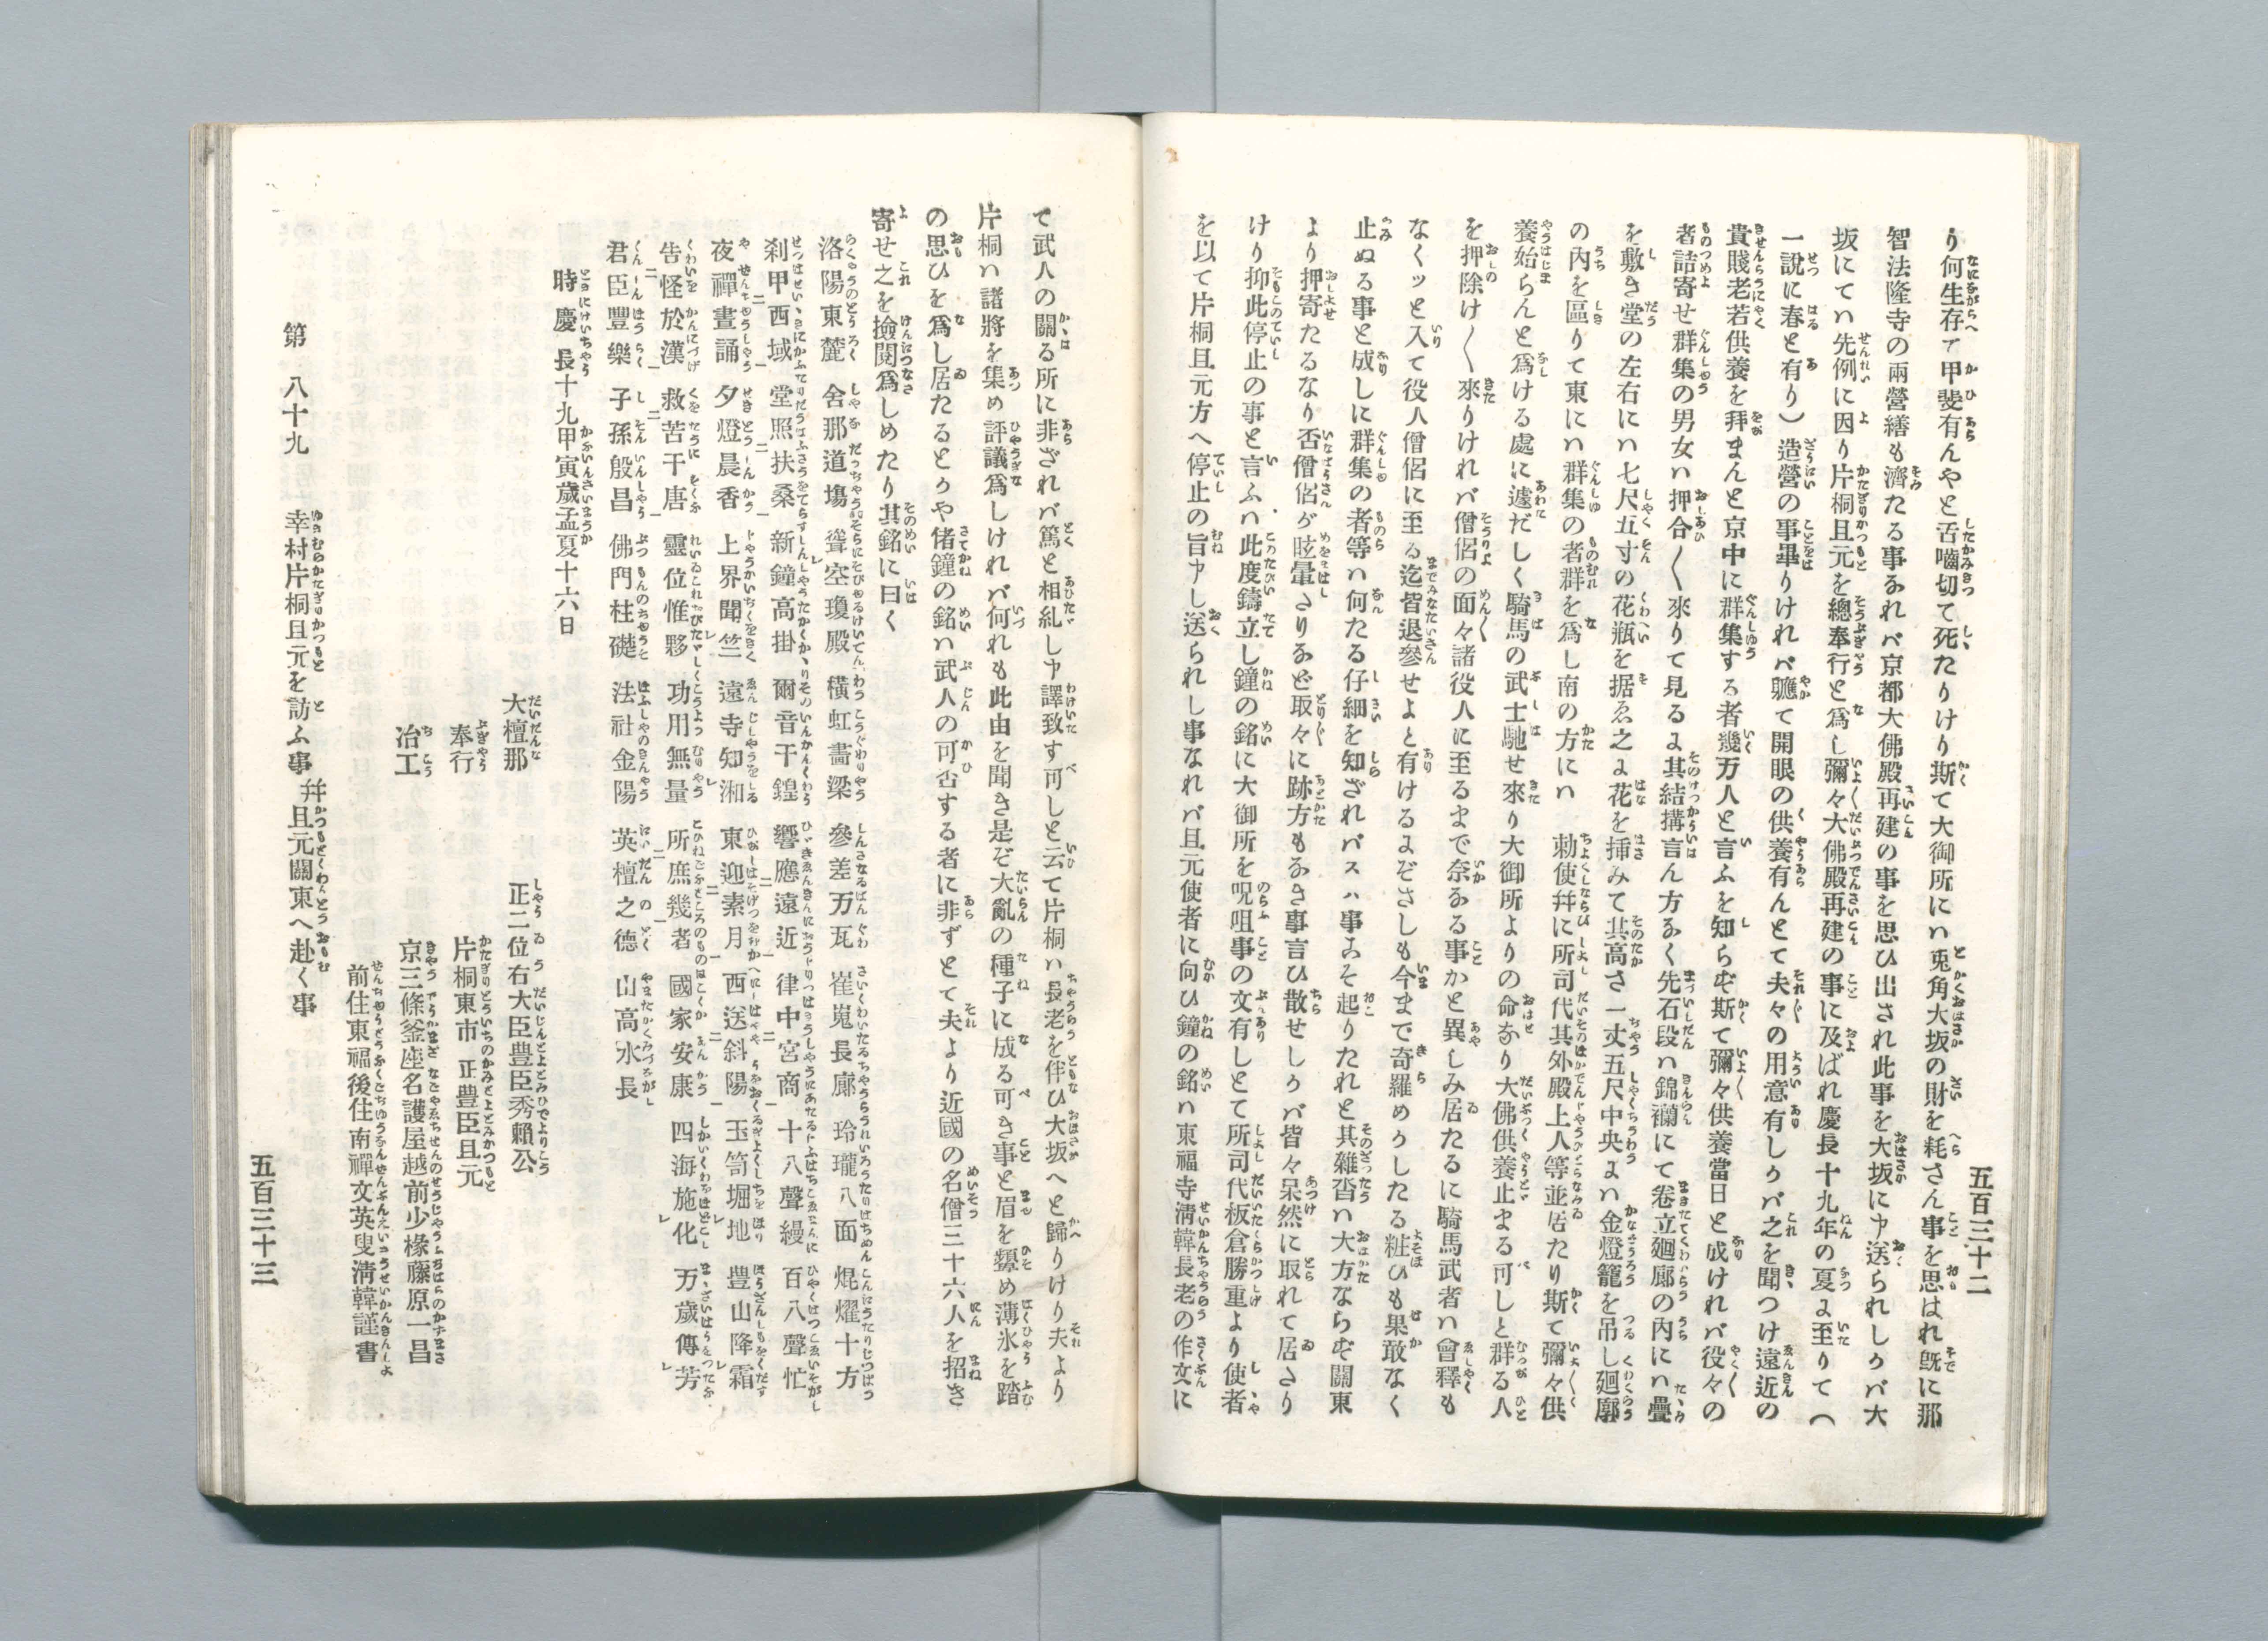 五百三十二
り何生存て甲斐有んやと舌嚙切て死たりけり斯て大御所にハ兎角大坂の財を耗さん事を思はれ既に那
智法隆寺の兩營繕も濟たる事なれバ京都大佛殿再建の事を思ひ出され此事を大坂に申送られしかバ大
坂にてハ先例に因り片桐且元を總奉行と爲し彌々大佛殿再建の事に及ばれ慶長十九年の夏に至りて(
一說に春と有り)造營の事畢りけれバ軈て開眼の供養有んとて夫々の用意有しかバ之を聞つけ遠近の
貴賤老若供養を拜まんと京中に群集する者幾万人と言ふを知らず斯て彌々供養當日と成けれバ役々の
者詰寄せ群集の男女ハ押合〱來りて見るに其結搆言ん方なく先石段ハ錦襴にて卷立廻廊の內にハ疊
を敷き堂の左右にハ七尺五寸の花瓶を据ゑ之に花を挿みて其高さ一丈五尺中央にハ金燈籠を吊し廻廓
の內を區りて東にハ群集の者群を爲し南の方にハ　勅使幷に所司代其外殿上人等並居たり斯て彌々供
養始らんと爲ける處に遽だしく騎馬の武士馳せ來り大御所よりの命なり大佛供養止まる可しと群る人
を押除け〱來りけれバ僧侶の面々諸役人に至るまで奈なる事かと異しみ居たるに騎馬武者ハ會釋も
なくツと入て役人僧侶に至る迄皆退參せよと有けるにぞさしも今まで奇羅めかしたる粧ひも果敢なく
止ぬる事と成しに群集の者等ハ何たる仔細を知ざれバスハ事こそ起りたれと其雜沓ハ大方ならず關東
より押寄たるなり否僧侶が眩暈さりなど取々に跡方もなき事言ひ散せしかバ皆々呆然に取れて居さり
けり抑此停止の事と言ふハ此度鑄立し鐘の銘に大御所を呪咀事の文有しとて所司代板倉勝重より使者
を以て片桐且元方へ停止の旨申し送られし事なれバ且元使者に向ひ鐘の銘ハ東福寺淸韓長老の作文に
て武人の關る所に非ざれバ篤と相糺し申譯致す可しと云て片桐ハ長老を伴ひ大坂へと歸りけり夫より
片桐ハ諸將を集め評議爲しけれバ何れも此由を聞き是ぞ大亂の種子に成る可き事と眉を顰め薄氷を踏
の思ひを爲し居たるとかや偖鐘の銘ハ武人の可否する者に非ずとて夫より近國の名僧三十六人を招き
寄せ之を撿閱爲しめたり其銘に曰く
洛陽東麓　舍那道塲　聳レ空瓊殿　橫虹畵梁　參差万瓦　崔嵬長廊　玲瓏八面　焜燿十方
刹甲二西域一　堂照二扶桑一　新鐘高掛　爾音干鍠　響應二遠近一　律中二宮商一　十八聲縵　百八聲忙
夜禪晝誦　夕燈晨香　上界聞レ竺　遠寺知レ湘　東迎二素月一　西送二斜陽一　玉笥堀レ地　豐山降レ霜
告二怪於漢一　救二苦干唐一　靈位惟夥　功用無量　所二庶幾一者　國家安康　四海施レ化　万歲傳レ芳
君臣豐樂　子孫殷昌　佛門柱礎　法社金陽　英檀之德　山高水長
時慶長十九甲寅歲孟夏十六日
大檀那　正二位右大臣豊臣秀賴公
奉行　片桐東市正豊臣且元
冶工　京三條釜座名護屋越前少椽藤原一昌
前住東福後住南禪文英叟淸韓謹書
第八十九　幸村片桐且元を訪ふ事幷且元關東へ赴く事
五百三十三